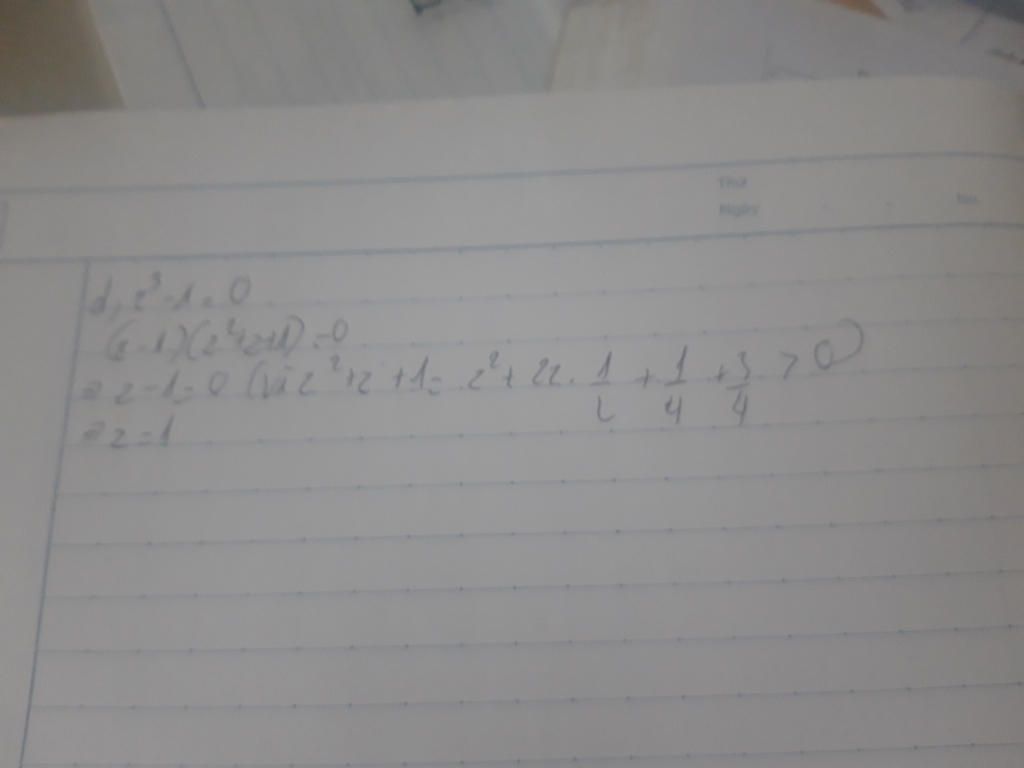 Thứ
Ngày
No.
d, z³ - 1 = 0
(z - 1)(z² + z + 1) = 0
⇒ z - 1 = 0 (Vì z² + z + 1 = z² + 2z. 1/2 + 1/4 + 3/4 > 0)
⇒ z = 1